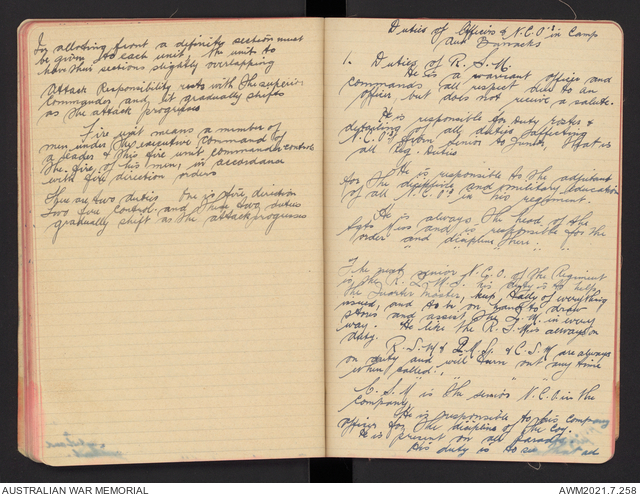 In allocating front a definite section must
be given to each unit, the unit to
have their sections slightly overlapping
Attack Responsibility rests with the superior
Commander and it gradually shifts
as the attack progresses
Fire unit means a number of
men under the executive command of
a leader & this fire unit commander controls
the fire of his men in accordance
with fire direction orders
There are two duties One is fire direction
Two fire control and these two duties
gradually shift as the attack progresses
Duties of Officers & N.C.O's in Camp
and Barracks
1. Duties of R.S.M.
He is a warrant officer and
commands all respect due to an
officer, but does not receive a salute.
He is responsible for duty roster &
detailing of all duties affecting
N.C.O's from senior to junior that is
all Reg. Duties
He is responsible to the adjutant
for the discipline and military education
of all N.C.O's in his regiment.
He is always the head of the
Sgts Mess and is responsible for the
order and discipline there.
The next senior N.C.O. of the Regiment
is the R.Q.M.S. his duty is to help
the Quarter Master, keep tally of everything
issued, and to be on hand to draw
stores and assist the Q.M. in every
way. He like the R.S.M. is always on
duty.
R.S.M & Q.M.S. & C.S.M are always
on duty and will turn out any time
when called.
C.S.M is the senior N.C.O in the
company
He is responsible to his company
officer for the discipline of the Coy.
He is present on all parades
His duty is to see that all
AUSTRALIAN WAR MEMORIAL
AWM2021.7.258